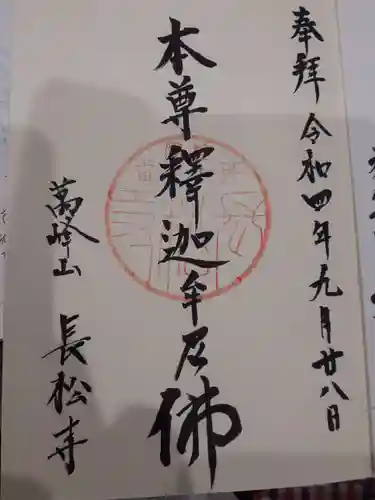 奉拝 令和四年九月廿八日
本尊釋迦牟尼佛
萬峰山 長松寺